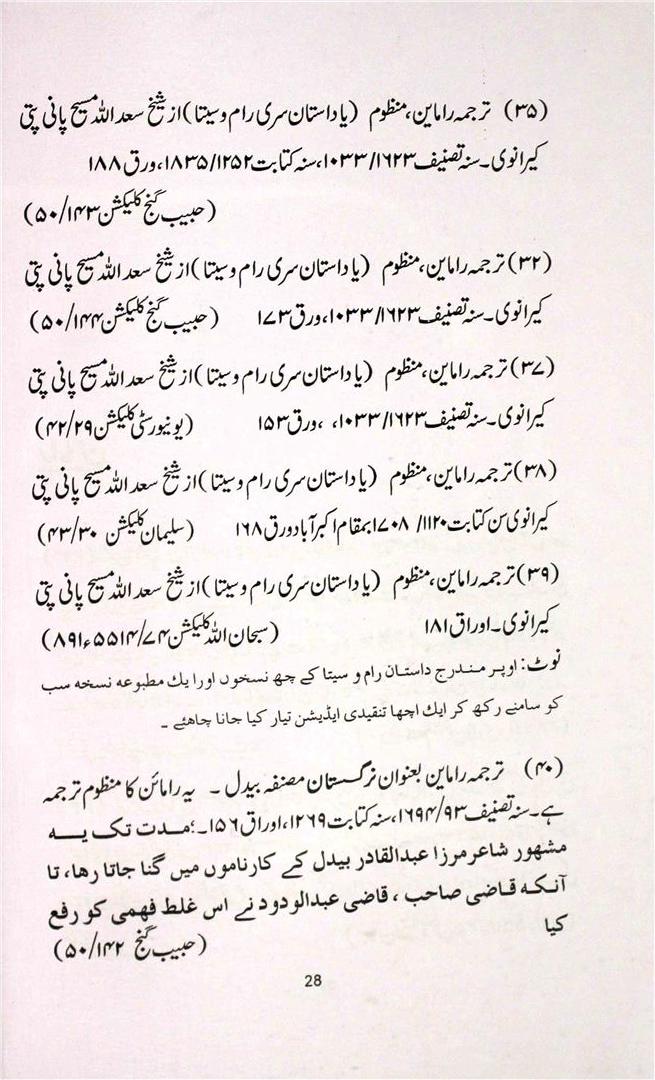 (۳۵) ترجمہ راماین، منظوم (یا داستان سری رام و سیتا) از شیخ سعد اللہ مسیح پانی پتی
کیرانوی۔ سنہ تصنیف ۱۰۳۳/۱۶۲۳، سنہ کتابت ۱۸۳۵/۱۲۵۲، ورق ۱۸۸
(حبیب گنج کلیکشن ۵۰/۱۴۳)
(۳۲) ترجمہ راماین، منظوم (یا داستان سری رام و سیتا) از شیخ سعد اللہ مسیح پانی پتی
کیرانوی۔ سنہ تصنیف ۱۰۳۳/۱۶۲۳، ورق ۱۷۳ (حبیب گنج کلیکشن ۵۰/۱۴۴)
(۳۷) ترجمہ راماین، منظوم (یا داستان سری رام و سیتا) از شیخ سعد اللہ مسیح پانی پتی
کیرانوی۔ سنہ تصنیف ۱۰۳۳/۱۶۲۳، ، ورق ۱۵۳ (یونیورسٹی کلیکشن ۴۲/۲۹)
(۳۸) ترجمہ راماین، منظوم (یا داستان سری رام و سیتا) از شیخ سعد اللہ مسیح پانی پتی
کیرانوی سن کتابت ۱۱۲۰/ ۱۷۰۸ بمقام اکبر آباد ورق ۱۶۸ (سلیمان کلیکشن ۴۳/۳۰)
(۳۹) ترجمہ راماین، منظوم (یا داستان سری رام و سیتا) از شیخ سعد اللہ مسیح پانی پتی
کیرانوی۔ اوراق ۱۸۱ (سبحان اللہ کلیکشن ۸۹۱ء۵۵۱۴/۷۴)
نوٹ: اوپر مندرج داستان رام و سیتا کے چھ نسخوں اور ایك مطبوعه نسخه سب
کو سامنے رکھ کر ایك اچھا تنقیدی ایڈیشن تیار کیا جانا چاھئے ۔
(۴۰) ترجمہ راماین بعنوان نرگستان مصنفہ بیدل ۔ یہ رامائن کا منظوم ترجمہ
ہے۔ سنہ تصنیف ۱۶۹۴/۹۳، سنہ کتابت ۱۲۶۹، اوراق ۱۵۶۔؛ مدت تک یہ
مشہور شاعر مرزا عبدالقادر بیدل کے کارناموں میں گنا جاتا رہا، تا
آنکہ قاضی صاحب ، قاضی عبدالودود نے اس غلط فہمی کو رفع
کیا
(حبیب گنج ۵۰/۱۴۲)
28